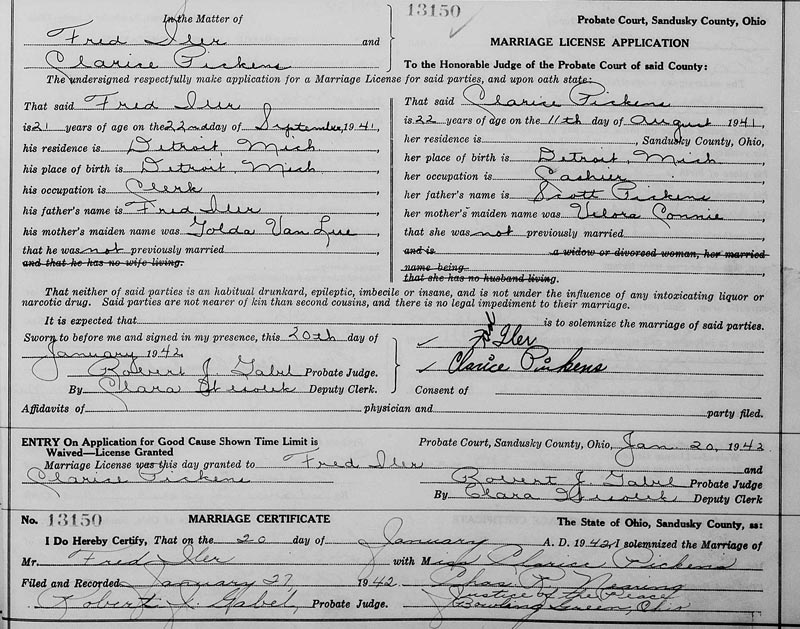 In the Matter of
Fred Iler and
Clarise Pickens
13150
Probate Court, Sandusky County, Ohio
MARRIAGE LICENSE APPLICATION
To the Honorable Judge of the Probate Court of said County:
The undersigned respectfully make application for a Marriage License for said parties, and upon oath state:
That said Fred Iler
is 21 years of age on the 22nd day of September, 1941,
his residence is Detroit, Mich,
his place of birth is Detroit, Mich.
his occupation is Clerk,
his father's name is Fred Iler,
his mother's maiden name was Golda Van Lue,
that he was not previously married
and that he has no wife living.
That said Clarise Pickens
is 22 years of age on the 11th day of August 1941,
her residence is , Sandusky County, Ohio,
her place of birth is Detroit, Mich,
her occupation is Cashier,
her father's name is Scott Pickens,
her mother's maiden name was Velora Connie,
that she was not previously married
and is a widow or divorced woman, her married
name being
that she has no husband living.
That neither of said parties is an habitual drunkard, epileptic, imbecile or insane, and is not under the influence of any intoxicating liquor or
narcotic drug. Said parties are not nearer of kin than second cousins, and there is no legal impediment to their marriage.
It is expected that is to solemnize the marriage of said parties.
Sworn to before me and signed in my presence, this 20th day of
January 1942.
Robert J. Gabel Probate Judge.
By Clara Deputy Clerk.
Iler
Clarice Pickens
Consent of
Affidavits of physician and party filed.
ENTRY On Application for Good Cause Shown Time Limit is
Waived—License Granted
Probate Court, Sandusky County, Ohio, Jan. 20, 1942
Marriage License was this day granted to Fred Iler and
Clarise Pickens
Robert J. Gabel Probate Judge
By Clara Deputy Clerk
No. 13150 MARRIAGE CERTIFICATE The State of Ohio, Sandusky County, ss:
I Do Hereby Certify, That on the 20 day of January A. D. 1942, I solemnized the Marriage of
Mr. Fred Iler with Miss Clarise Pickens
Filed and Recorded January 27, 1942. Chas. R. Nearing
Robert J. Gabel, Probate Judge. Justice of the Peace
Bowling Green, Ohio